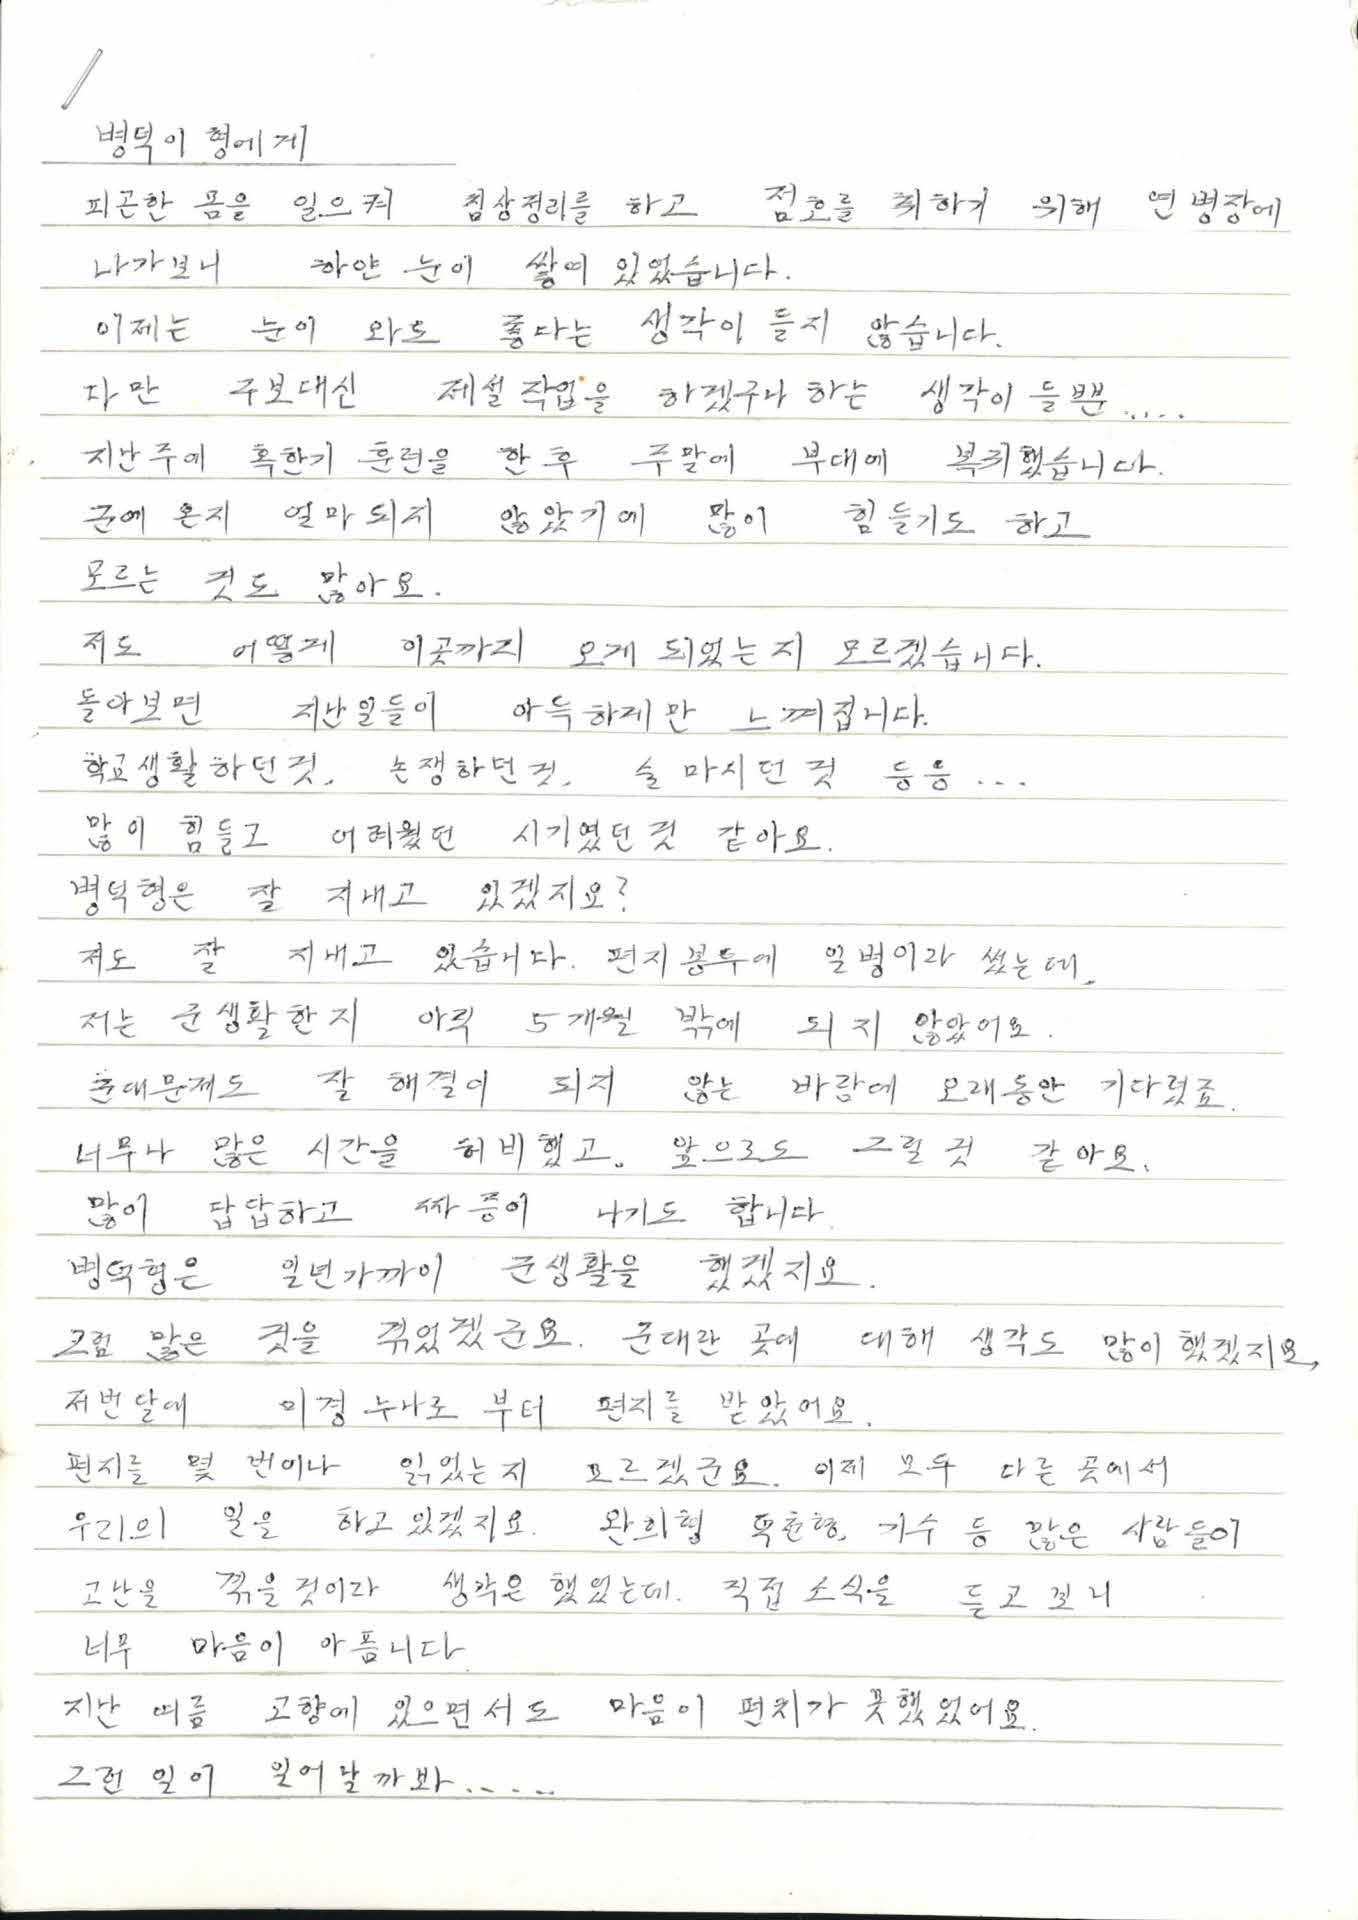 병덕이 형에게
피곤한 몸을 일으켜 침상정리를 하고 점호를 취하기 위해 연병장에
나가보니 하얀 눈이 쌓여 있었습니다.
이제는 눈이 와도 좋다는 생각이 들지 않습니다.
다만 구보대신 제설작업을 하겠구나 하는 생각이 들뿐.....
지난주에 혹한기 훈련을 한 후 주말에 부대에 복귀했습니다.
군에 온지 얼마되지 않았기에 많이 힘들기도 하고
모르는 것도 많아요.
저도 어떻게 이곳까지 오게 되었는지 모르겠습니다.
돌아보면 지난일들이 아득하게만 느껴집니다.
학교생활하던것, 논쟁하던것, 술 마시던것 등등...
많이 힘들고 어려웠던 시기였던것 같아요.
병덕형은 잘 지내고 있겠지요?
저도 잘 지내고 있습니다. 편지봉투에 일병이라 썼는데,
저는 군생활한지 아직 5개월 밖에 되지 않았어요.
군대문제도 잘 해결이 되지 않는 바람에 오래동안 기다렸죠.
너무나 많은 시간을 허비했고, 앞으로도 그럴것 같아요.
많이 답답하고 짜증이 나기도 합니다.
병덕형은 일년가까이 군생활을 했겠지요.
그럼 많은 것을 겪었겠군요. 군대란 곳에 대해 생각도 많이 했겠지요,
저번달에 미경누나로 부터 편지를 받았어요.
편지를 몇 번이나 읽었는지 모르겠군요. 이제 모두 다른 곳에서
우리의 일을 하고있겠지요. 완희형 기수 등 많은 사람들이
고난을 겪을것이라 생각은 했었는데. 직접 소식을 듣고보니
너무 마음이 아픕니다.
지난 여름 고향에 있으면서도 마음이 편치가 못했었어요.
그런 일이 일어날까봐.....